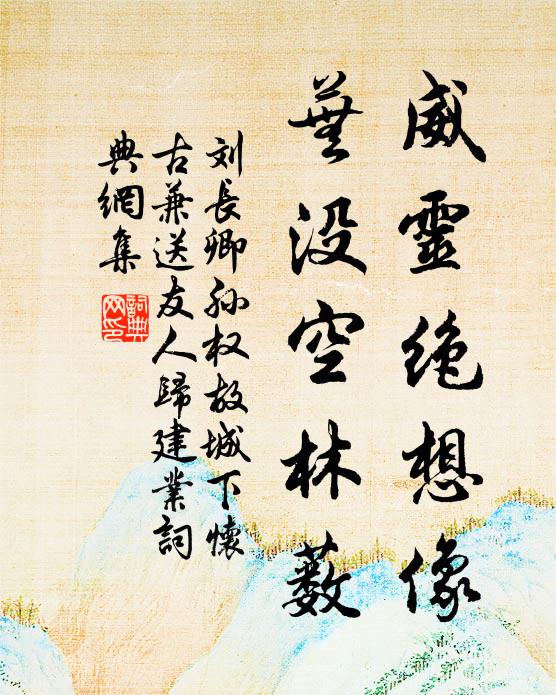 威靈絶想像
蕪没空林薮
刘長卿孙权故城下懷
古兼送友人歸建業詞
典網集
詞典
网印